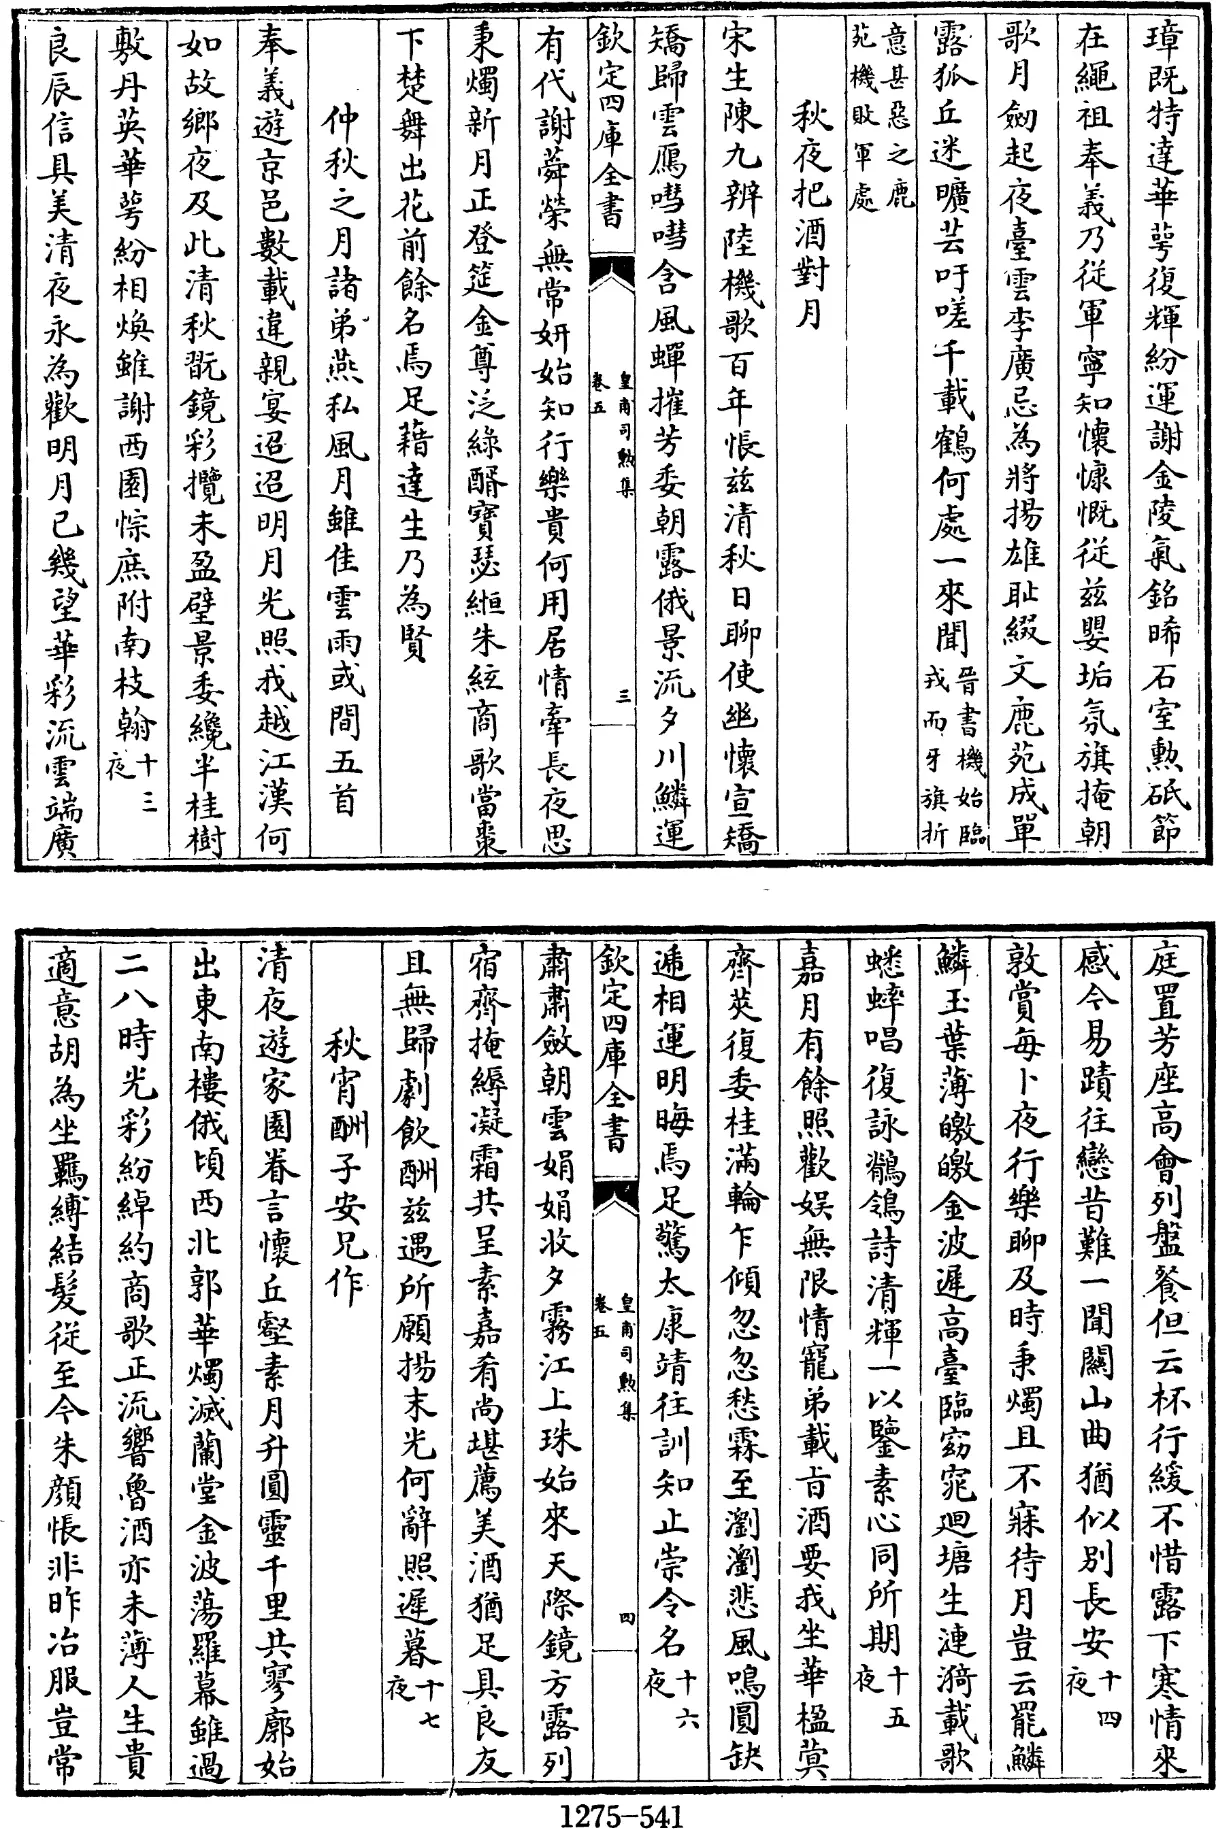 璋既特達華萼復輝紛運謝金陵氣銘晞石室勲砥節
在繩祖奉義乃從軍寧知懷慷慨從兹嬰垢氛旗掩朝
歌月劒起夜臺雲李廣忌為將揚雄耻綴文鹿苑成單
露狐丘迷曠芸吁嗟千載鶴何處一來聞晉書機始臨戎而牙旗折
意甚惡之鹿苑機敗軍處
秋夜把酒對月
宋生陳九辨陸機歌百年悵兹清秋日聊使幽懷宣矯
矯歸雲鴈嘒嘒含風蟬摧芳委朝露俄景流夕川鱗運
欽定四庫全書
皇甫司勲集
卷五
三
有代謝蕣榮無常妍始知行樂貴何用居情牽長夜思
秉燭新月正登筵金尊泛綠醑寶瑟緪朱絃商歌當棗
下楚舞出花前餘名焉足藉達生乃為賢
仲秋之月諸弟燕私風月雖佳雲雨或間五首
奉義遊京邑數載違親宴迢迢明月光照我越江漢何
如故鄉夜及此清秋翫鏡彩攬未盈璧景委纔半桂樹
敷丹英華萼紛相煥雖謝西園悰庶附南枝翰十三夜
良辰信具美清夜永為歡明月已幾望華彩流雲端廣
庭置芳座高會列盤餐但云杯行緩不惜露下寒情來
感今易蹟往戀昔難一聞關山曲猶似别長安十四夜
敦賞每卜夜行樂聊及時秉燭且不寐待月豈云罷鱗
鱗玉葉薄皦皦金波遲高臺臨窈窕迴塘生漣漪載歌
蟋蟀唱復詠鶺鴒詩清輝一以鑒素心同所期十五夜
嘉月有餘照歡娱無限情寵弟載旨酒要我坐華楹蓂
齊莢復委桂滿輪乍傾忽忽愁霖至瀏瀏悲風鳴圓缺
逓相運明晦焉足驚太康靖往訓知止崇令名十六夜
欽定四庫全書
皇甫司勲集
卷五
四
肅肅斂朝雲娟娟收夕霧江上珠始來天際鏡方露列
宿齊掩縟凝霜共呈素嘉肴尚堪薦美酒猶足具良友
且無歸劇飲酬兹遇所願揚末光何辭照遲暮十七夜
秋宵酬子安兄作
清夜遊家園眷言懷丘壑素月升圓靈千里共寥廓始
出東南樓俄頃西北郭華燭滅蘭堂金波蕩羅幕雖過
二八時光彩紛綽約商歌正流響魯酒亦未薄人生貴
適意胡為坐羈縛結髮從至今朱顔悵非昨冶服豈常
1275-541